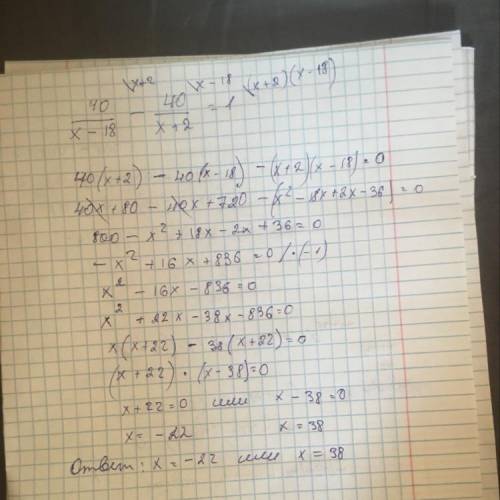 \x+2 \x-18 \(x+2)(x-18)
40/(x-18) - 40/(x+2) = 1
40(x+2) - 40(x-18) - (x+2)(x-18)=0
40x+80-40x+720-(x²-18x+2x-36)=0
800-x²+18x-2x+36=0
-x²+16x+836=0/·(-1)
x²-16x-836=0
x²+22x-38x-836=0
x(x+22)-38(x+22)=0
(x+22)·(x-38)=0
x+22=0 или x-38=0
x=-22 x=38
Ответ: x=-22 или x=38